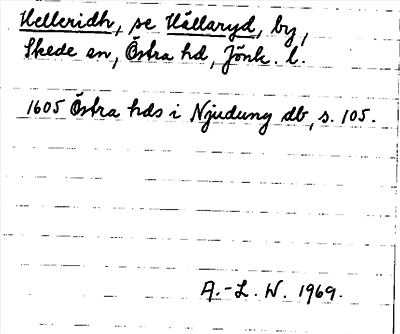 Helleridh, se Hällaryd, by,
Skede sn, Östra hd, Jönk. l.
1605 Östra hds i Njudung db, s. 105.
A.-L. W. 1969.